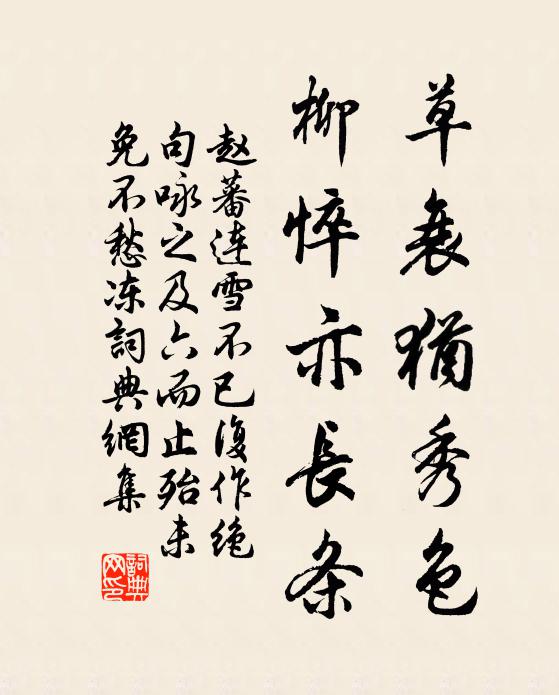 草衰猶秀色
柳悴亦長条
赵蕃连雪不已復作绝
句咏之及六而止殆未
免不愁冻詞典網集
詞典网印